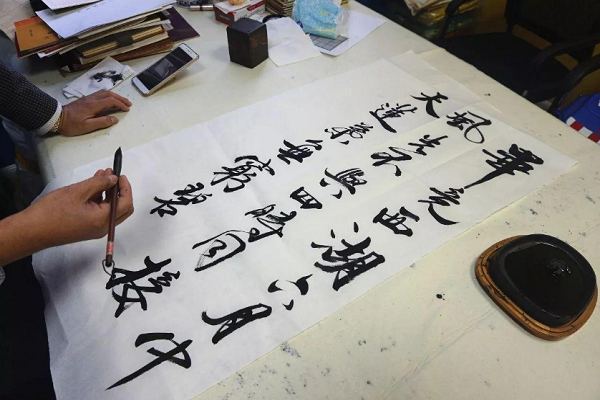 畢竟西湖六月中
風光不與四時同接
天蓮葉無窮碧